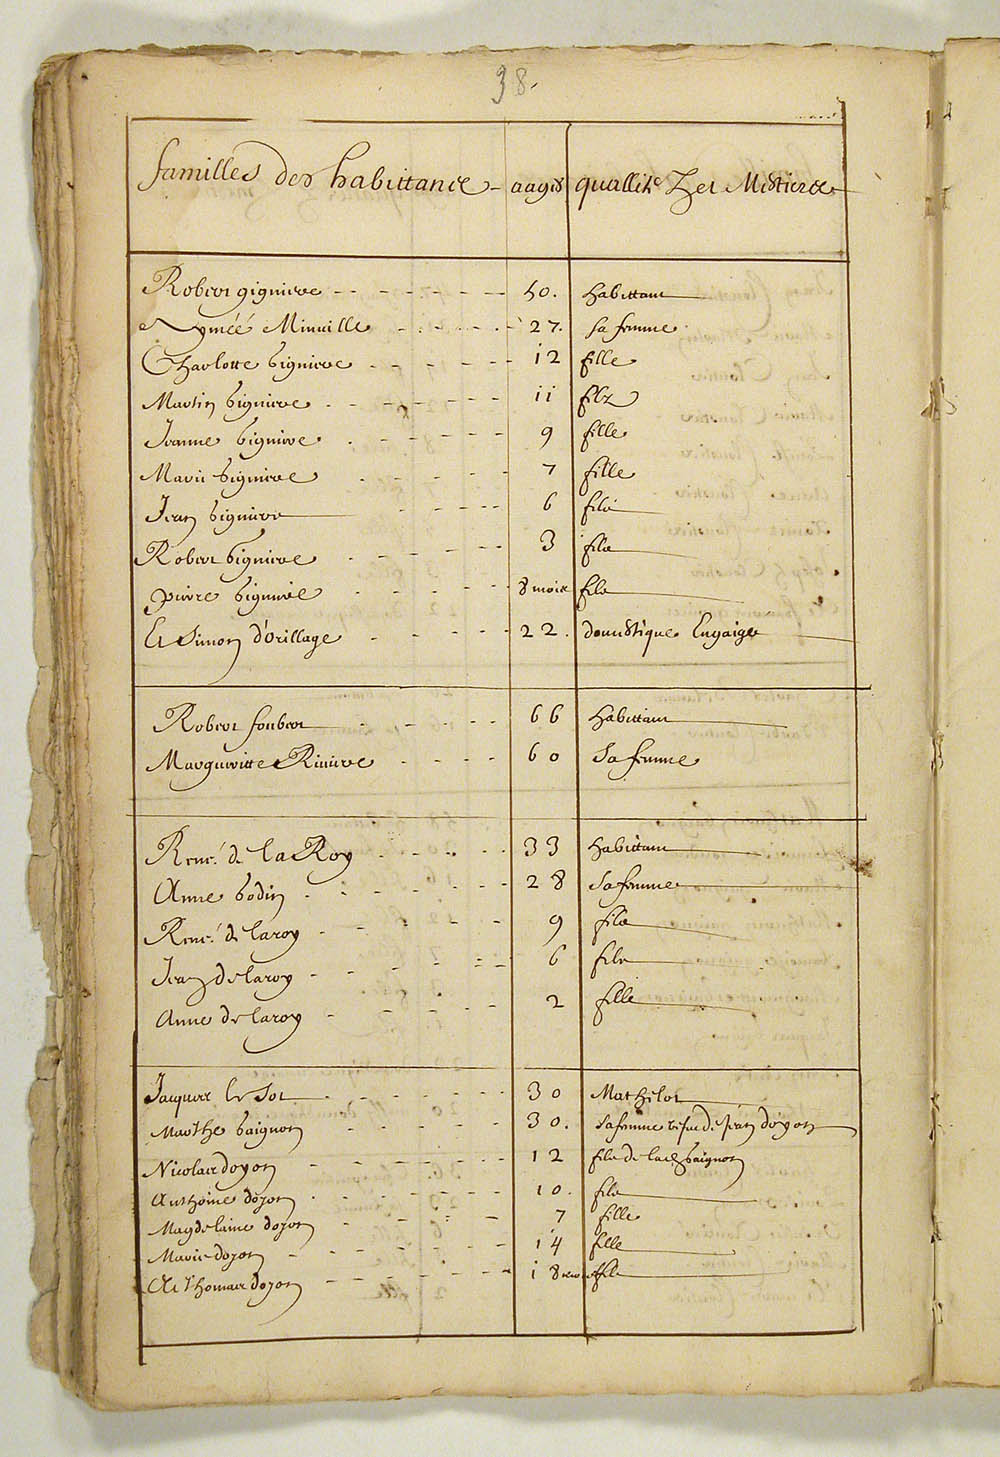 38.
familles des habittans aages quallitez et Mestiers
Robert gigniere 50. habittant
Aymée Miruille 27. sa femme
Charlotte gigniere 12 fille
Martin gigniere 11 filz
Jeanne gigniere 9 fille
Marie gigniere 7 fille
Jean gigniere 6 fils
Robert gigniere 3 fils
pierre gigniere 8 mois fils
Et Simon d'Orillage 22. domestique Engaigé
Robert foubert 66 habittant
Margueritte Riuiere 60 Sa femme
René de la Roy 33 habittant
Anne godin 28 Sa femme
René de laroy 9 fils
Jean de laroy 6 fils
Anne de laroy 2 fille
Jacques le Sot 30 Mathelot
Marthe gaignon 30. Sa femme vefue de Jean doyon
Nicolas doyon 12 fils de lad gaignon
Anthoine doyon 10. fils
Magdelaine doyon 7 fille
Marie doyon 14 fille
Et Thomas doyon 18 mois fils